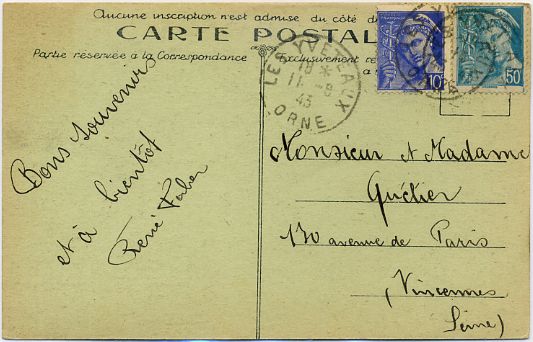 Aucune inscription n'est admise du côté de
CARTE POSTAL
Partie réservée à la Correspondance
Exclusivement re
LES YVETEAUX
18 *
11 - 8
43
ORNE
10
50
Bons Souvenirs
et à bientôt
René Faber
Monsieur et Madame
Quétier
130 avenue de Paris
(Vincennes
Seine)